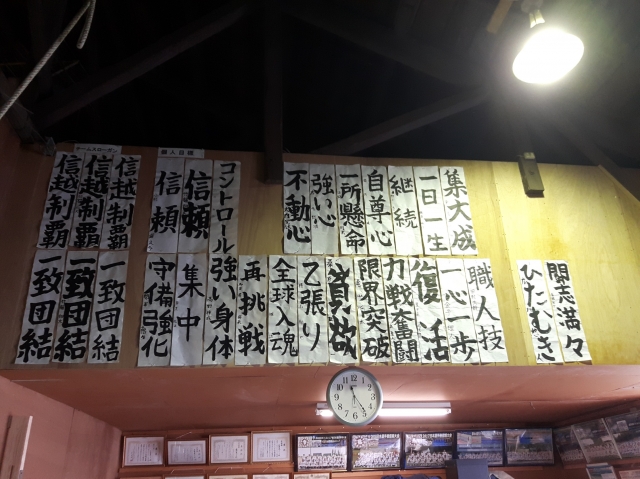 チームスローガン
個人目標
信越制覇
信越制覇
信越制覇
信頼
信頼
コントロール
不動心
強い心
一所懸命
自尊心
継続
一日一生
集大成
一致団結
一致団結
一致団結
守備強化
集中
強い身体
再挑戦
全球入魂
乙張り
貪欲
限界突破
力戦奮闘
復活
一心一歩
職人技
ひたむき
闘志満々